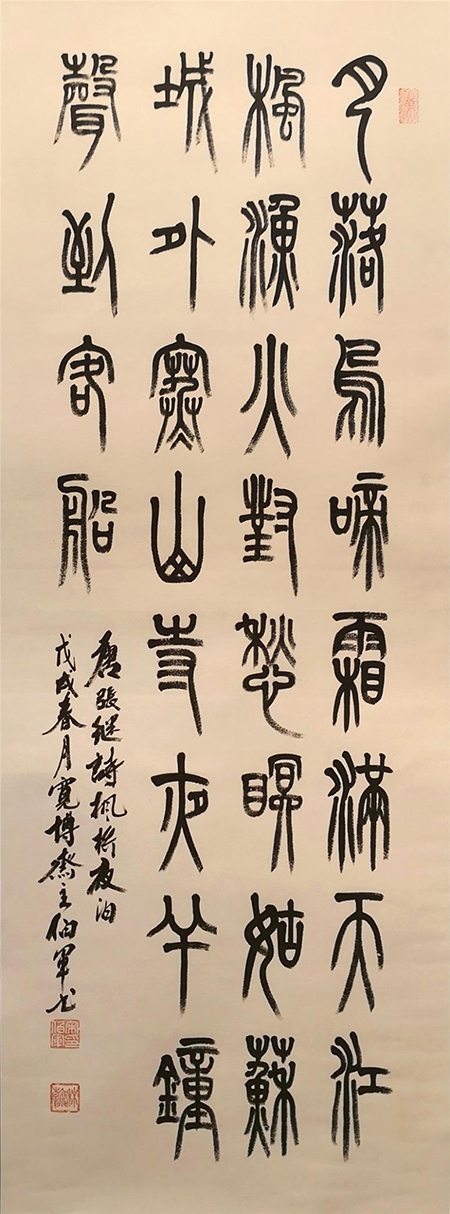 月落烏啼霜滿天江
楓漁火對愁眠姑蘇
城外寒山寺夜半鐘
聲到客船
唐張继詩楓橋夜泊
戊戌春月寬博齋主伯軍书